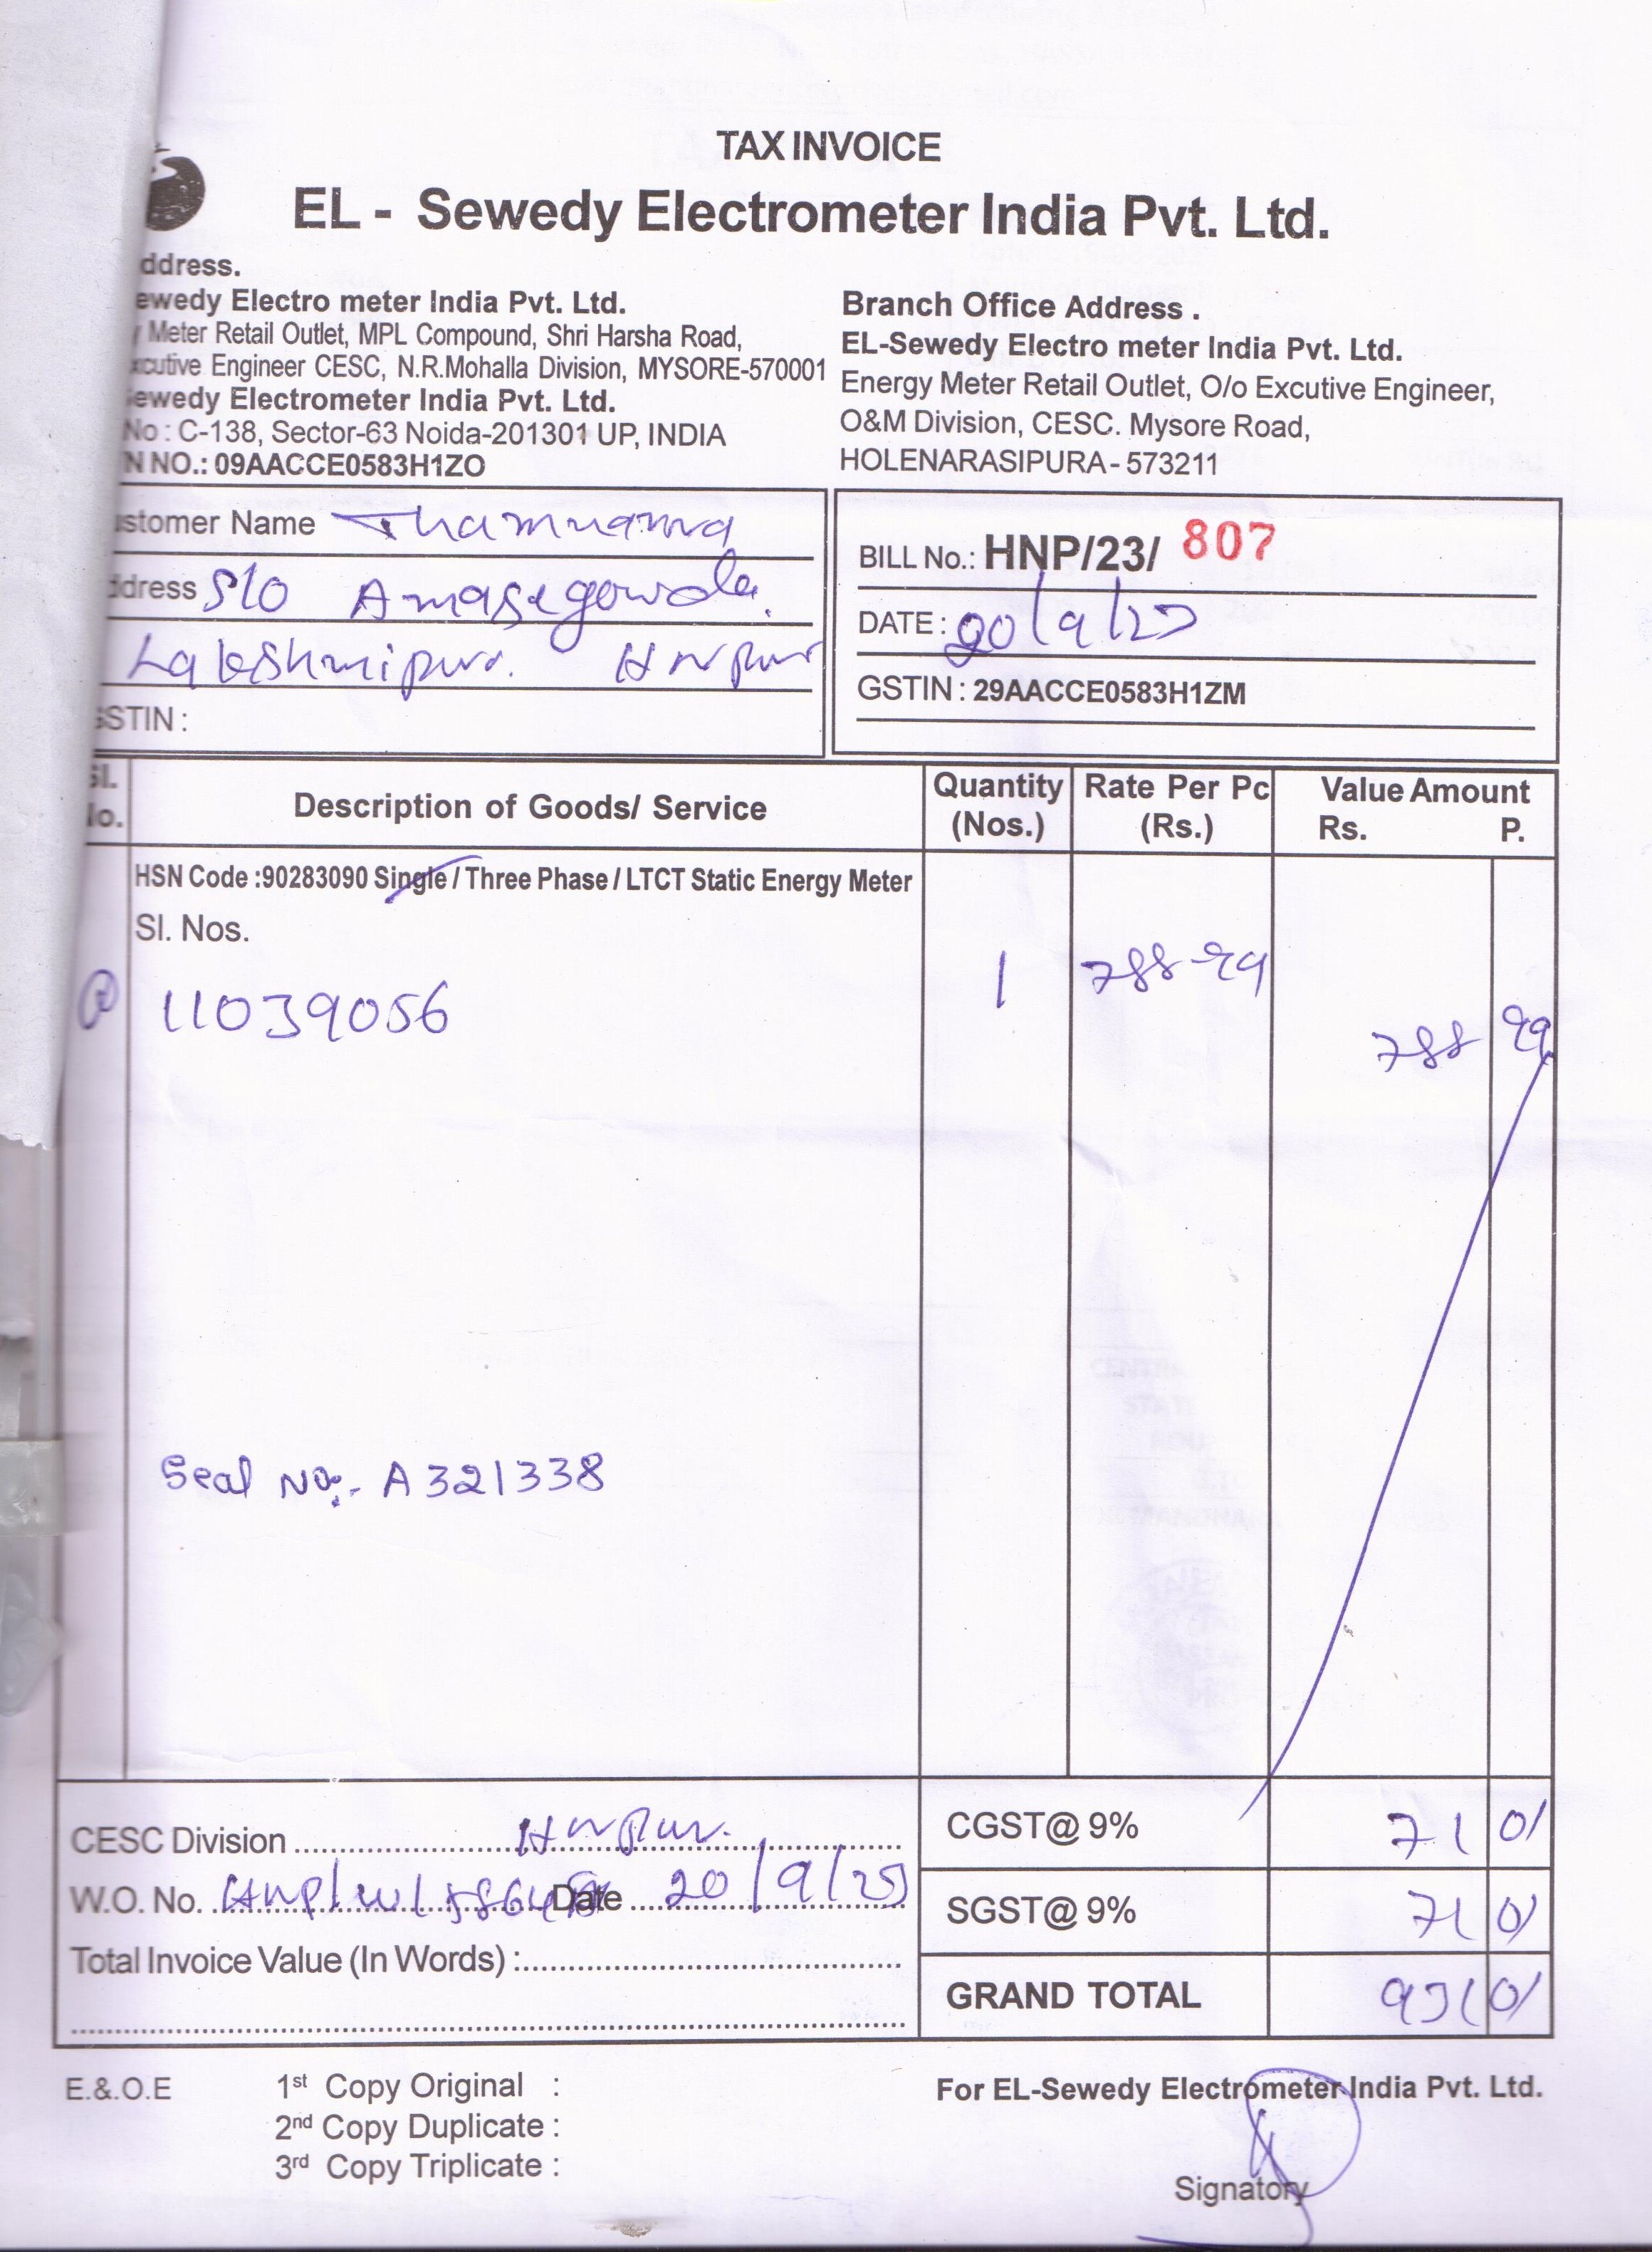 TAX INVOICE
EL - Sewedy Electrometer India Pvt. Ltd.
ddress.
ewedy Electro meter India Pvt. Ltd.
Meter Retail Outlet, MPL Compound, Shri Harsha Road,
cutive Engineer CESC, N.R.Mohalla Division, MYSORE-570001
ewedy Electrometer India Pvt. Ltd.
No : C-138, Sector-63 Noida-201301 UP, INDIA
N NO.: 09AACCE0583H1ZO
Branch Office Address .
EL-Sewedy Electro meter India Pvt. Ltd.
Energy Meter Retail Outlet, O/o Excutive Engineer,
O&M Division, CESC. Mysore Road,
HOLENARASIPURA - 573211
ustomer Name
ddress S/O Amasegowda.
Lakshmipura. HNpur
GSTIN :
BILL No.: HNP/23/ 807
DATE : 20/9/25
GSTIN : 29AACCE0583H1ZM
Sl. No. Description of Goods/ Service Quantity (Nos.) Rate Per Pc (Rs.) Value Amount Rs. P.
HSN Code :90283090 Single / Three Phase / LTCT Static Energy Meter
Sl. Nos.
11039056 1 788-99 788 99
Seal No:- A321338
CESC Division HNpur.
W.O. No. Date 20/9/25
Total Invoice Value (In Words) :
CGST@ 9% 71 01
SGST@ 9% 71 01
GRAND TOTAL 931 01
E.&.O.E
1st Copy Original :
2nd Copy Duplicate :
3rd Copy Triplicate :
For EL-Sewedy Electrometer India Pvt. Ltd.
Signatory